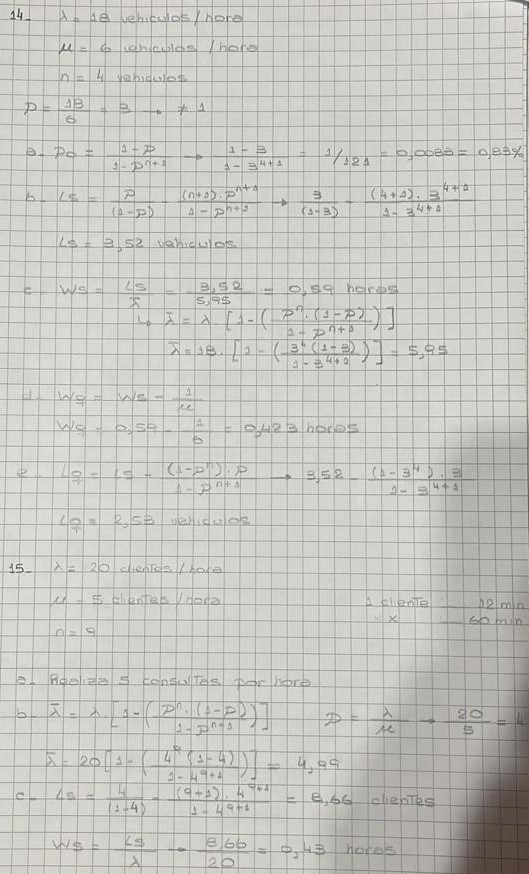 14- λ = 18 vehiculos/hora
μ = 6 vehiculos/hora
n = 4 vehiculos
P = 18/6 = 3 → ≠ 1
a- Po = (1-P)/(1-P^(n+1)) → (1-3)/(1-3^(4+1)) = 1/121 = 0,0083 = 0,83%
b- Ls = P/(1-P) - ((n+1).P^(n+1))/(1-P^(n+1)) → 3/(1-3) - ((4+1).3^(4+1))/(1-3^(4+1))
Ls = 3,52 vehiculos
c- Ws = Ls/λ̄ = 3,52/5,95 = 0,59 horas
↳ λ̄ = λ.[1-((P^n.(1-P))/(1-P^(n+1)))]
λ̄ = 18.[1-((3^4(1-3))/(1-3^(4+1)))] = 5,95
d- Wq = Ws - 1/μ
Wq = 0,59 - 1/6 = 0,423 horas
e- Lq = Ls - ((1-P^n).P)/(1-P^(n+1)) → 3,52 - ((1-3^4).3)/(1-3^(4+1))
Lq = 2,53 vehiculos
15- λ = 20 clientes/hora
μ = 5 clientes/hora 1 cliente — 12 min
x — 60 min
n = 9
a- Realiza 5 consultas por hora
b- λ̄ = λ [1-((P^n.(1-P))/(1-P^(n+1)))] P = λ/μ → 20/5 = 4
λ̄ = 20[1-((4^9(1-4))/(1-4^(9+1)))] = 4,99
c- Ls = 4/(1-4) - ((9+1).4^(9+1))/(1-4^(9+1)) = 8,66 clientes
Ws = Ls/λ → 8,66/20 = 0,43 horas